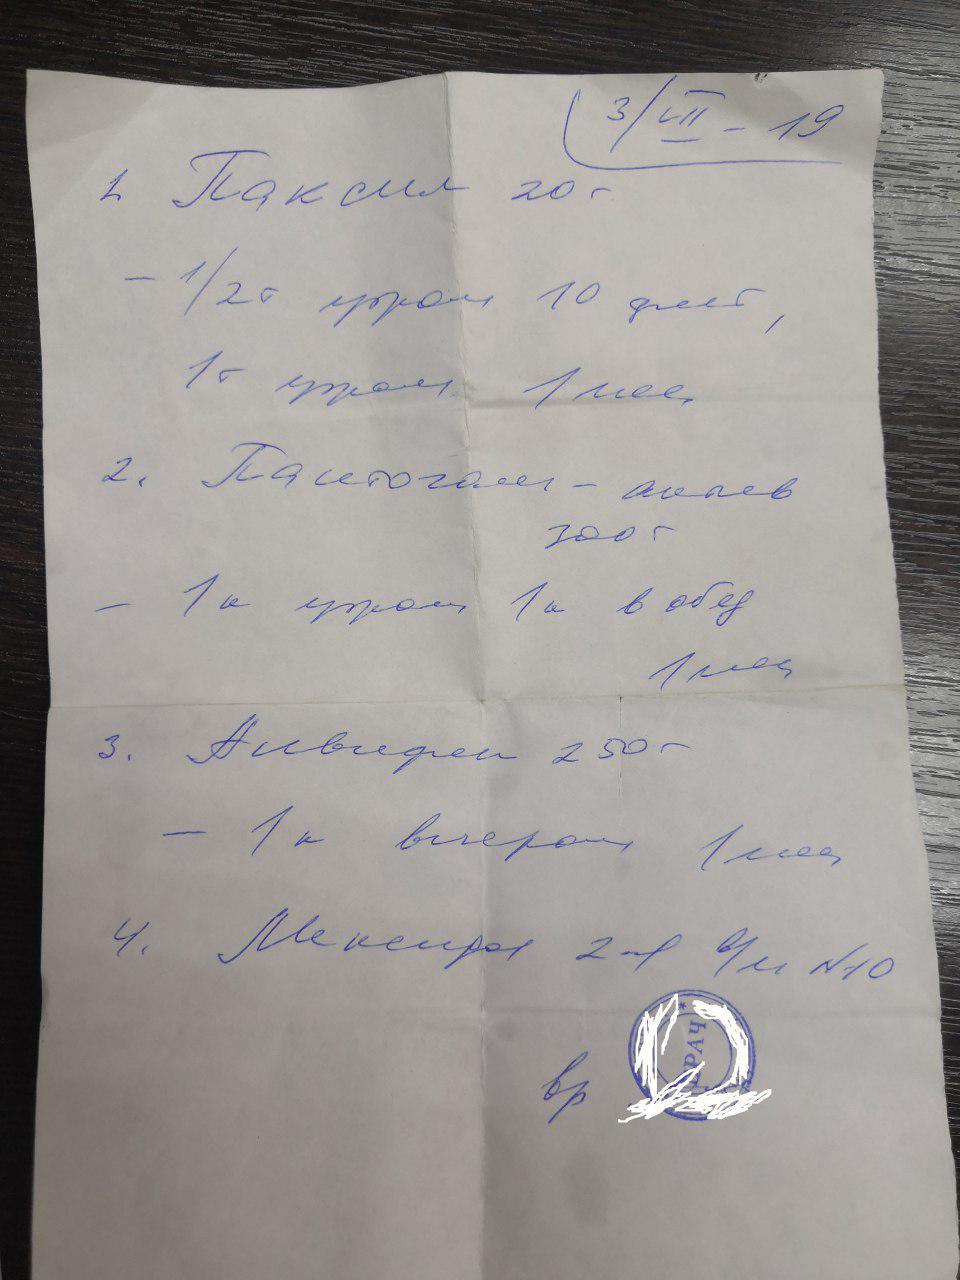 3/VII - 19
1. Паксил 20 г
- 1/2 т утром 10 дней,
1 т утром 1 мес
2. Пантогам - актив
300 г
- 1 к утром 1 к в обед
1 мес
3. Анвифен 250 г
- 1 к вечером 1 мес
4. Мексидол 2-л в/м N10
вр
ВРАЧ